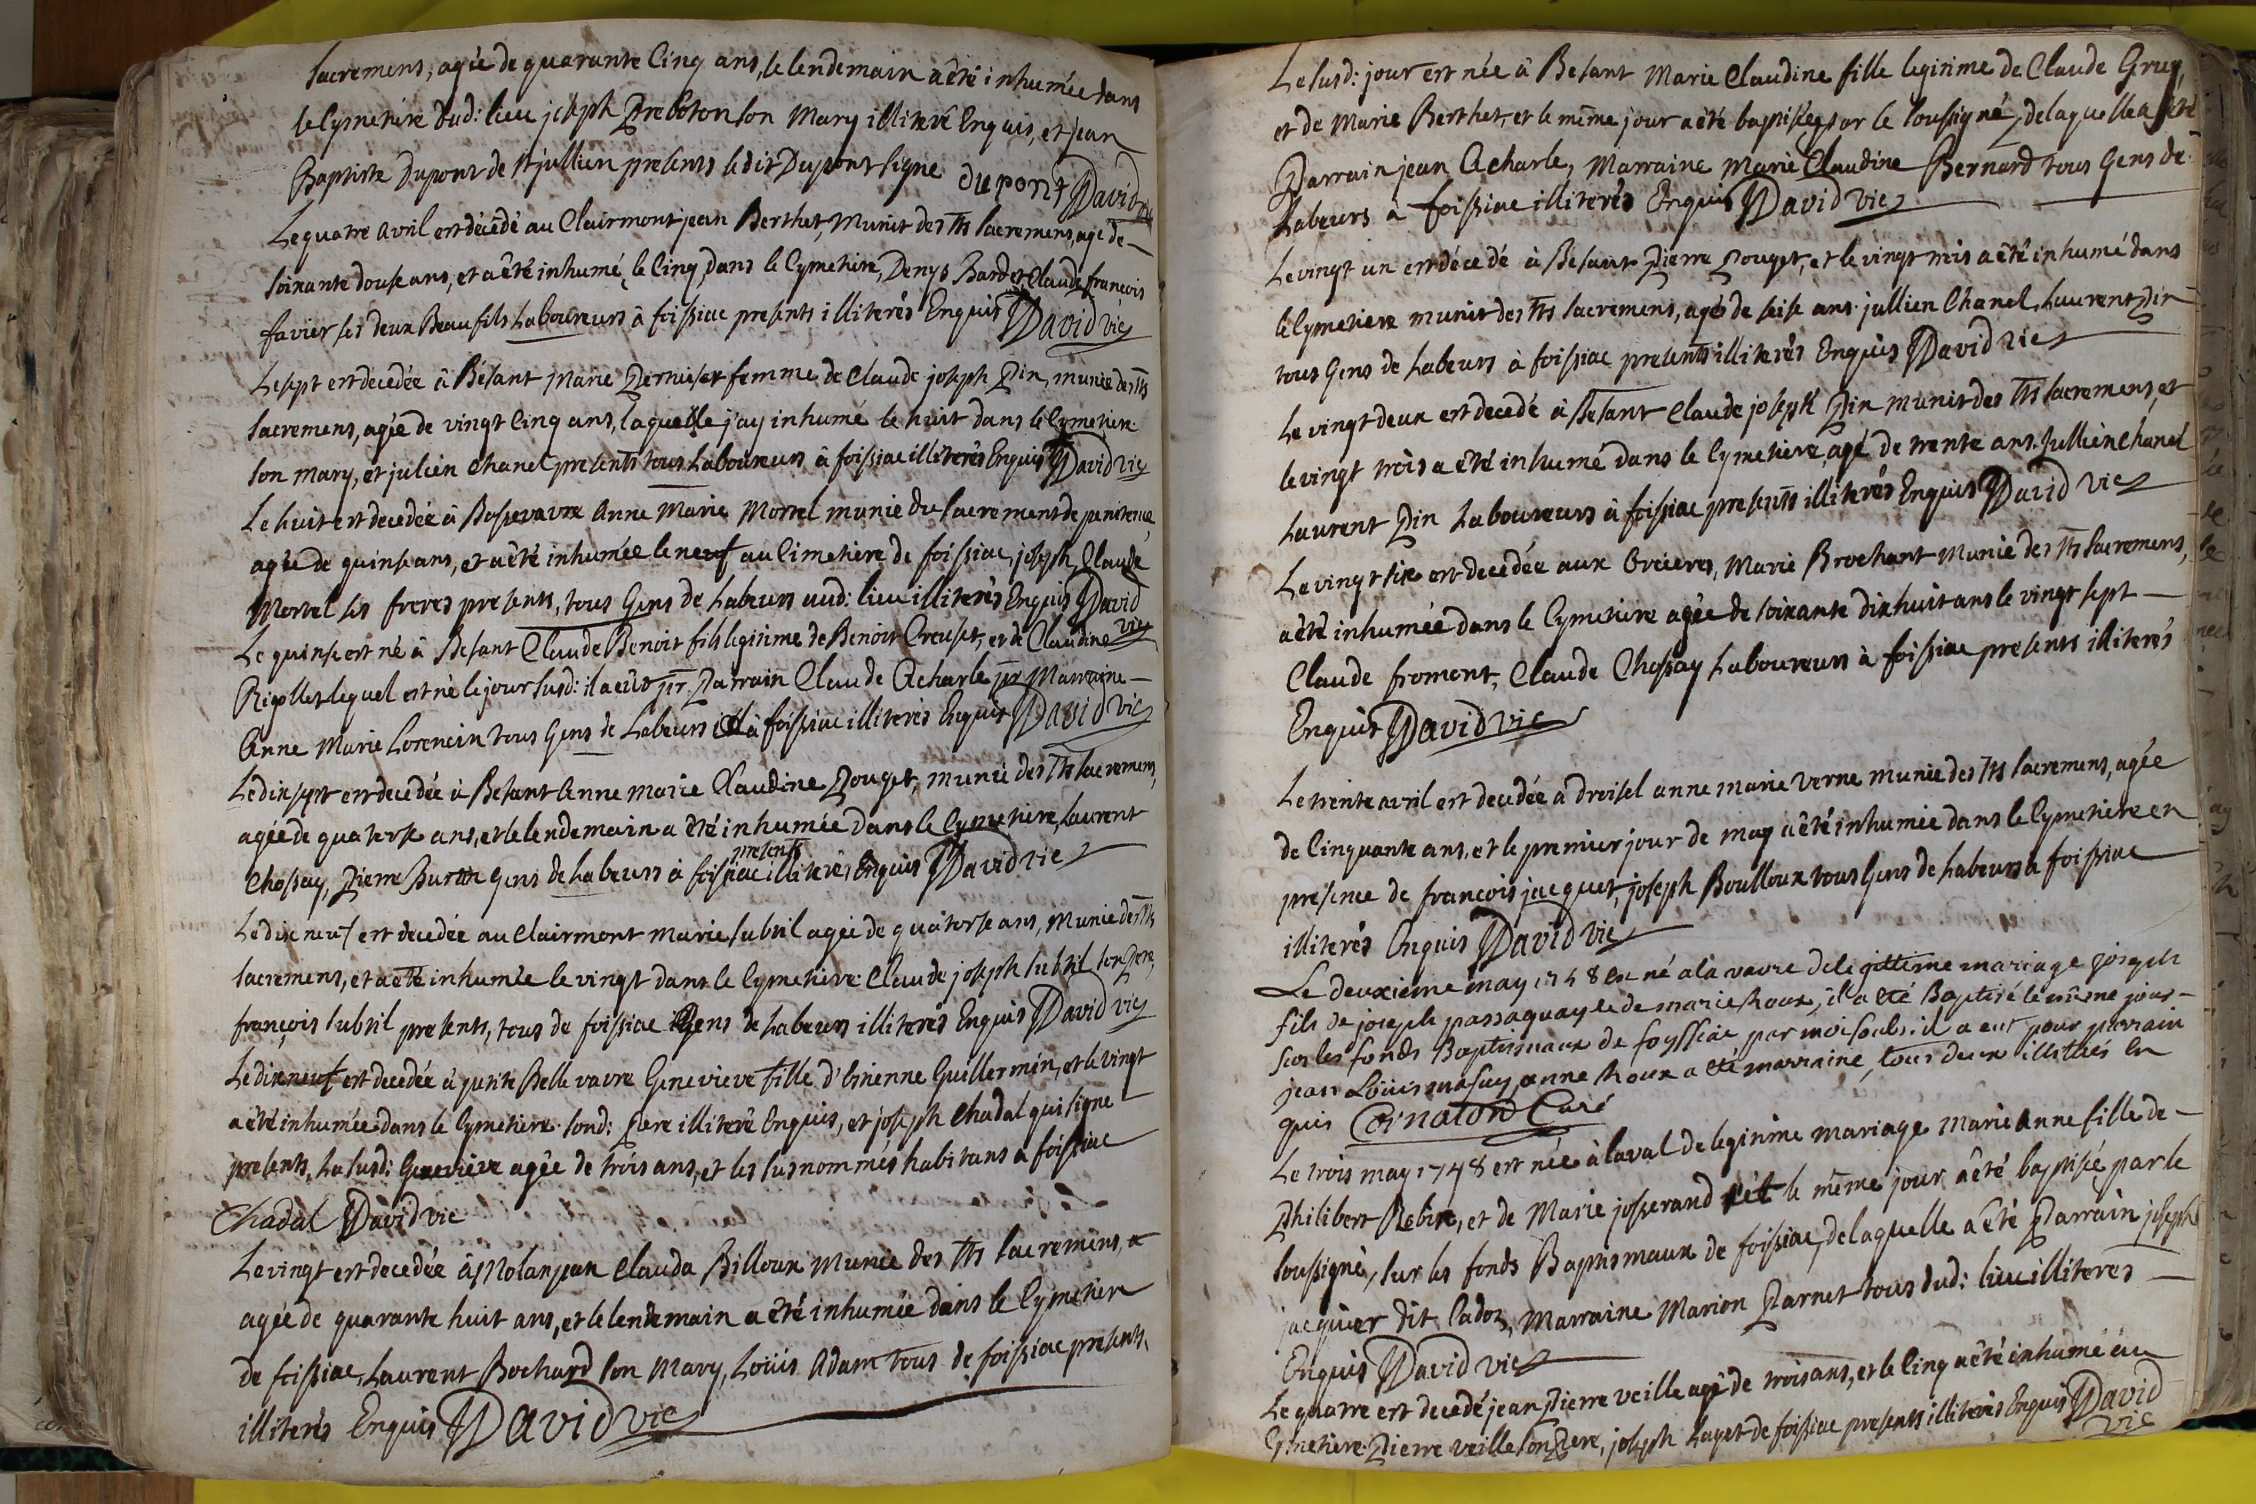 sacremens, agée de quarante Cinq ans, le lendemain a êté inhumée dans
le Cymetiere dud: lieu joseph Preboton son Mary illiteré Enquis, et jean
Baptiste Dupont de st jullien presents ledit Dupont signe Dupont David vic
Le quatre avril est décédé au Clairmont jean Berthet, Munit des Sts Sacremens, agé de
soixante douse ans, et a êté inhumé le Cinq, dans le Cymetiere, Denys Bardet, Claude françois
favier ses deux Beaufils Laboureurs à foissiac presents illiterés Enquis David vic
Le sept est decedée à Besant Marie Perniset femme de Claude joseph Pin, munie des Sts
Sacremens, agée de vingt Cinq ans, laquelle j'ay inhumé le huit dans le Cymetiere
son Mary, et julien Chanel presents tous Laboureurs à foissiac illiterés Enquis David vic
Le huit est decedée à Bassevavre Anne Marie Morrel munie du Sacrement de penitence
agée de quinse ans, et a êté inhumée le neuf au Cimetiere de foissiac, joseph, Claude
Morrel ses freres presents, tous Gens de Labeurs aud: lieu illiterés Enquis David vic
Le quinse est né à Besant Claude Benoit fils legitime de Benoit Creuset, et de Claudine
Riollet lequel est né le jour susd: il a eu pr. Parrain Claude Acharle pr Marraine
Anne Marie Lorencin tous Gens de Labeurs à foissiac illiterés Enquis David vic
Le dix sept est decedée à Besant Anne marie Claudine Pouget, munie des Sts Sacremens,
agée de quatorse ans, et le lendemain a êté inhumée Dans le Cymetiere, Laurent
Chossay, Pierre Gens de Labeurs à foissiac presents illiterés Enquis David vic
Le dix neuf est decedée au Clairmont marie subtil agée de quatorse ans, Munie des Sts
Sacremens, et a êté inhumée le vingt dans le Cymetiere Claude joseph subtil son Pere,
françois subtil presents, tous de foissiac Gens de Labeurs illiterés Enquis David vic
Le dix neuf est decedée à petite Bellevavre Genevieve fille d'Etienne Guillermin, et le vingt
a êté inhumée dans le Cymetiere sond: Pere illiteré Enquis, et joseph Chadal qui signe
presents, La susd: Genevieve agée de trois ans, et les susnommés habitans à foissiac
Chadal David vic
Le vingt est decedée à Molanjean Clauda Billoux Munie des Sts Sacremens,
agée de quarante huit ans, et le lendemain a êté inhumée dans le Cymetiere
de foissiac, Laurent Bochard son Mary, Loüis Adam tous de foissiac presents,
illiterés Enquis David vic
Le susd: jour est née à Besant Marie Claudine fille legitime de Claude
et de Marie Berthet, et le même jour a êté baptisée par le soussigné, de laquelle a êté
Parrain jean Acharle, Marraine Marie Claudine Bernard tous Gens de
Labeurs à foissiac illiterés Enquis David vic
Le vingt un est décedé à Besant Pierre Pouget, et le vingt trois a êté inhumé dans
le Cymetiere munit des Sts Sacremens, agés de seise ans jullien Chanel, Laurent Pin
tous Gens de Labeurs à foissiac presents illiterés Enquis David vic
Le vingt deux est decedé à Besant Claude joseph Pin munit des Sts Sacremens, et
le vingt trois a êté inhumé dans le Cymetiere, agé de trente ans. Jullien Chanel
Laurent Pin Laboureurs à foissiac presents illiterés Enquis David vic
Le vingt six est decedée aux Orcieres, Marie Brochant Munie des Sts Sacremens,
a êté inhumée dans le Cymetiere agée de soixante dix huit ans le vingt sept
Claude fromont, Claude Chossay Laboureurs à foissiac presents illiterés
Enquis David vic
Le trente avril est decedée à droisel anne marie verne munie des Sts Sacremens, agée
de Cinquante ans, et le premier jour de may a êté inhumée dans le Cymetiere en
presence de françois jacquet, joseph Boulloux tous Gens de Labeurs à foissiac
illiterés Enquis David vic
Le deuxieme may 1748 est né a la vavre de legittime mariage joseph
fils de joseph passaquay et de marie Roux, il a eté Baptisé le même jour
sur les fonds Baptismaux de foyssiac par moi souls. il a eut pour parrain
jean Loüis masuy, anne Roux a eté marraine, tous deux illiterés en
quis Coinaton Curé
Le trois may 1748 est née à laval de legitime mariage Marie Anne fille de
Philibert Rebin, et de Marie josserand et le même jour a êté baptisée par le
soussigné, sur les fonds Baptismaux de foissiac, de laquelle a êté Parrain joseph
jacquier dit Cadoz, Marraine Marion Parnet tous dud: lieu illiterés
Enquis David vic
Le quatre est decedé jean Pierre veille agé de trois ans, et le Cinq a êté inhumé au
Cymetiere Pierre veille son Pere, joseph Layet de foissiac presents illiterés Enquis David vic